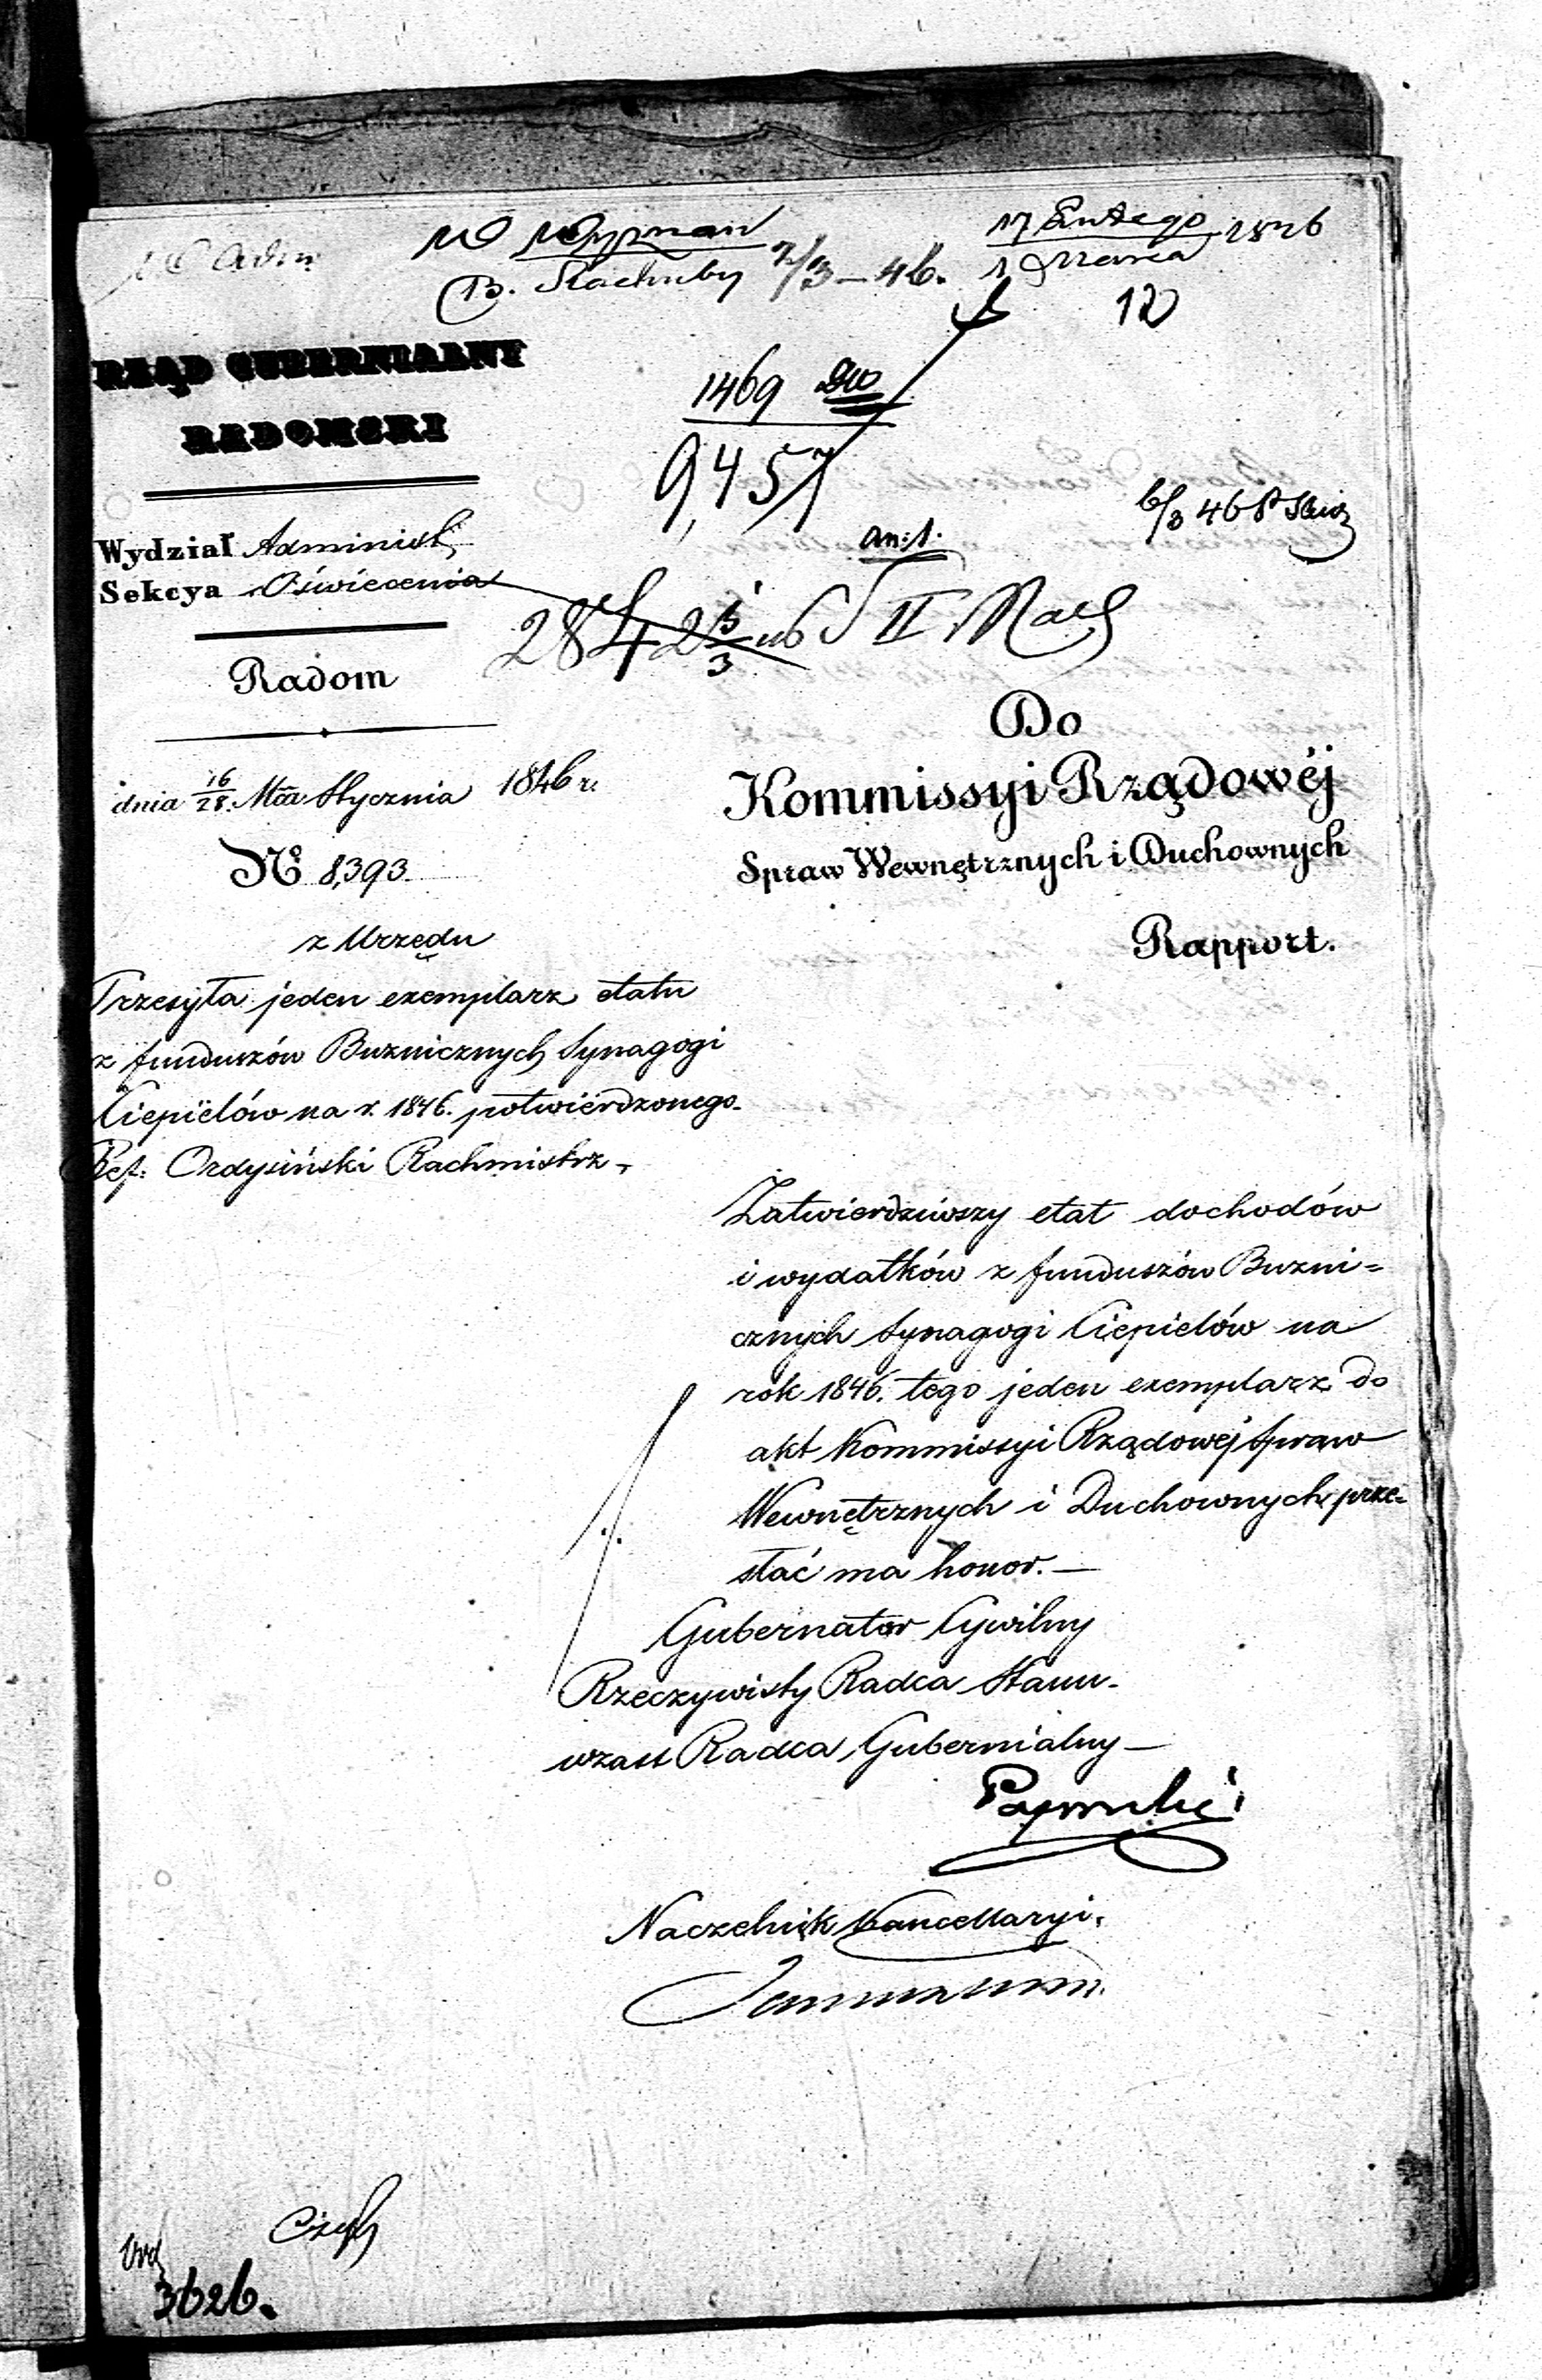 W Wyznań
17 Lutego 1846
B. Rachuby 2/3 - 46.
1 Marca
12
1469
9,457
RZĄD GUBERNIALNY
RADOMSKI
6/3 46
an: 1.
Wydział Administ:
Sekcya Oświecenia
2842 3/3 46 II
Radom
Do
Kommissyi Rządowéj
Spraw Wewnętrznych i Duchownych
Rapport.
dnia 16/28. Mca Stycznia 1846 r.
No 8,393.
z Urzędu
Przesyła jeden exemplarz etatu
z funduszów Buznicznych Synagogi
Ciepielów na r. 1846. potwierdzonego.
Ref: Ordysiński Rachmistrz.
Zatwierdziwszy etat dochodów
i wydatków z funduszów Buzni=
cznych Synagogi Ciepielów na
rok 1846. tego jeden exemplarz do
akt Kommissyi Rządowéj Spraw
Wewnętrznych i Duchownych prze=
słać ma honor. —
Gubernator Cywilny
Rzeczywisty Radca Stanu.
wzast Radca Gubernialny —
Naczelnik Kancellaryi.
3626.